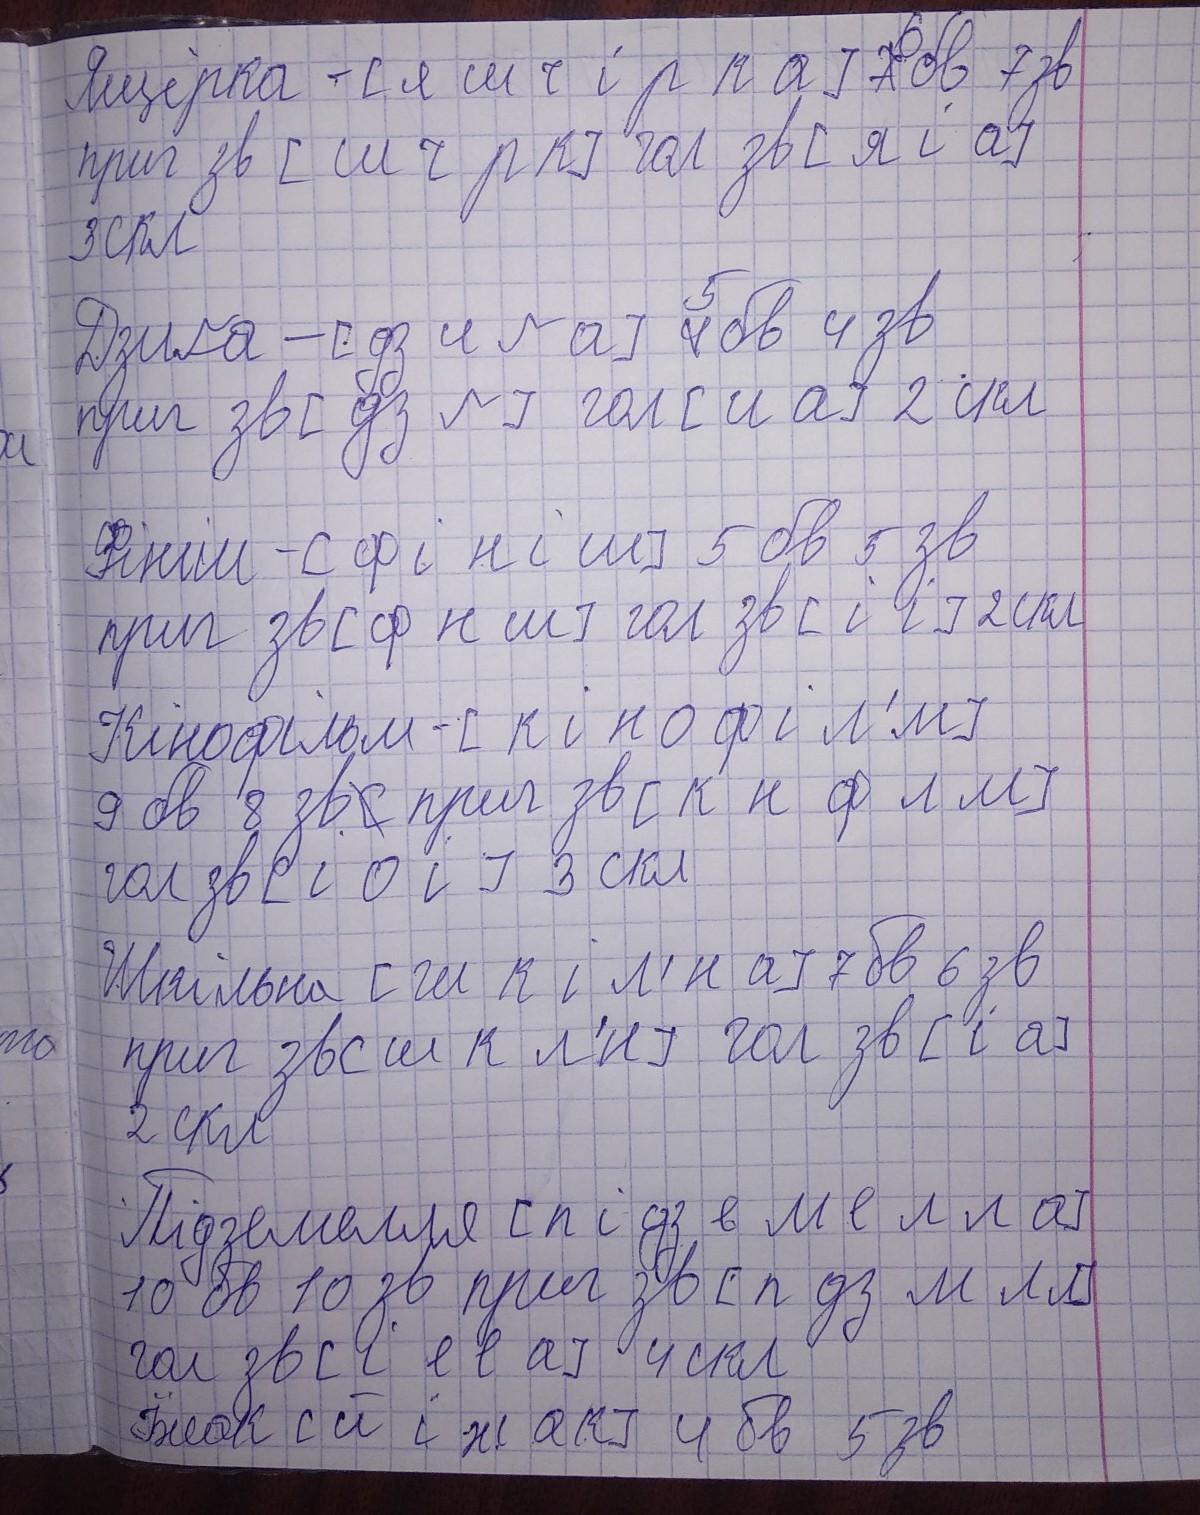 Ящірка - [я ш ч і р к а] 6 бв 7 зв
приг зв [ш ч р к] гол зв [я і а]
3 скл
Дзиґа - [дз и ґ а] 5 бв 4 зв
приг зв [дз ґ] гол [и а] 2 скл
Фініш - [ф і н і ш] 5 бв 5 зв
приг зв [ф н ш] гол зв [і і] 2 скл
Кінофільм - [к і н о ф і л' м]
9 бв 8 зв приг зв [к н ф л м]
гол зв [і о і] 3 скл
Шкільна [ш к і л' н а] 7 бв 6 зв
приг зв [ш к л' н] гол зв [і а]
2 скл
Підземелля [п і дз е м е л л а]
10 бв 10 зв приг зв [п дз м л л]
гол зв [і е е а] 4 скл
Їжак [й і ж а к] 4 бв 5 зв